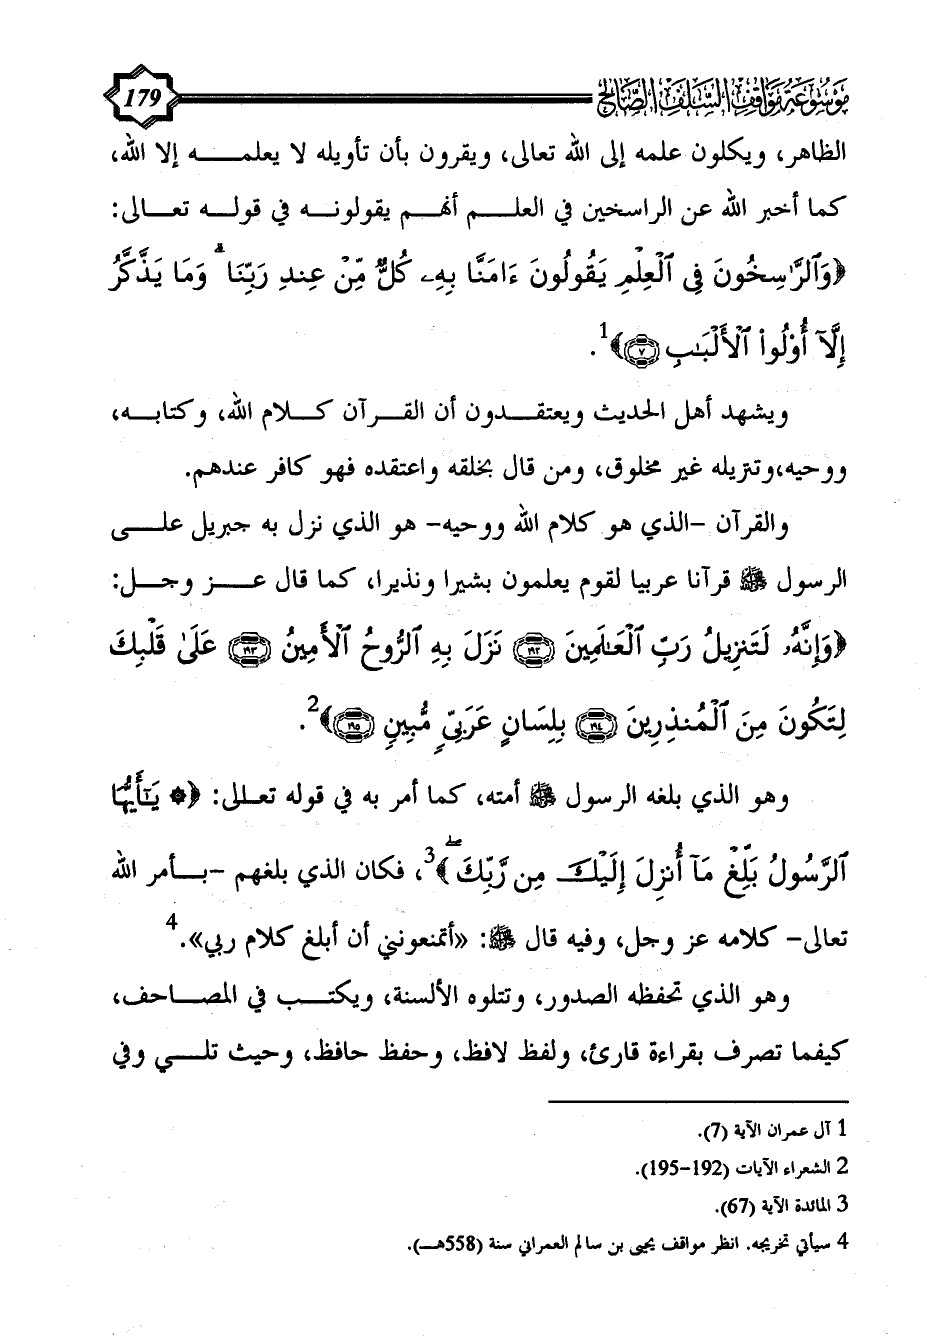 موسوعة مواقف السلف الصالح 179
الظاهر، ويكلون علمه إلى الله تعالى، ويقرون بأن تأويله لا يعلمـــه إلا الله،
كمـا أخبر الله عن الراسخين في العلـــم أنهـم يقولونـــه في قولـــه تعـــالى:
﴿وَٱلرَّٰسِخُونَ فِى ٱلْعِلْمِ يَقُولُونَ ءَامَنَّا بِهِۦ كُلٌّ مِّنْ عِندِ رَبِّنَا ۗ وَمَا يَذَّكَّرُ
إِلَّآ أُو۟لُوا۟ ٱلْأَلْبَٰبِ ٧﴾1.
ويشهد أهل الحديث ويعتقـــدون أن القـــرآن كـــلام الله، وكتابـــه،
ووحيه،وتنزيله غير مخلوق، ومن قال بخلقه واعتقده فهو كافر عندهم.
والقرآن –الذي هو كلام الله ووحيه– هو الذي نزل به جبريل علـــى
الرسول ﷺ قرآنا عربيا لقوم يعلمون بشيرا ونذيرا، كما قال عـــز وجـــل:
﴿وَإِنَّهُۥ لَتَنزِيلُ رَبِّ ٱلْعَٰلَمِينَ ١٩٢ نَزَلَ بِهِ ٱلرُّوحُ ٱلْأَمِينُ ١٩٣ عَلَىٰ قَلْبِكَ
لِتَكُونَ مِنَ ٱلْمُنذِرِينَ ١٩٤ بِلِسَانٍ عَرَبِىٍّ مُّبِينٍ ١٩٥﴾2.
وهو الذي بلغه الرسول ﷺ أمته، كما أمر به في قوله تعالى: ﴿۞ يَٰٓأَيُّهَا
ٱلرَّسُولُ بَلِّغْ مَآ أُنزِلَ إِلَيْكَ مِن رَّبِّكَ ۖ﴾3، فكان الذي بلغهم –بـــأمر الله
تعالى– كلامه عز وجل، وفيه قال ﷺ: «أتمنعونني أن أبلغ كلام ربي».4
وهو الذي تحفظه الصدور، وتتلوه الألسنة، ويكتـــب في المصـــاحف،
كيفما تصرف بقراءة قارئ، ولفظ لافظ، وحفظ حافظ، وحيث تلـــي وفي
1 آل عمران الآية (7).
2 الشعراء الآيات (192-195).
3 المائدة الآية (67).
4 سيأتي تخريجه. انظر مواقف يحيى بن سالم العمراني سنة (558هـــ).